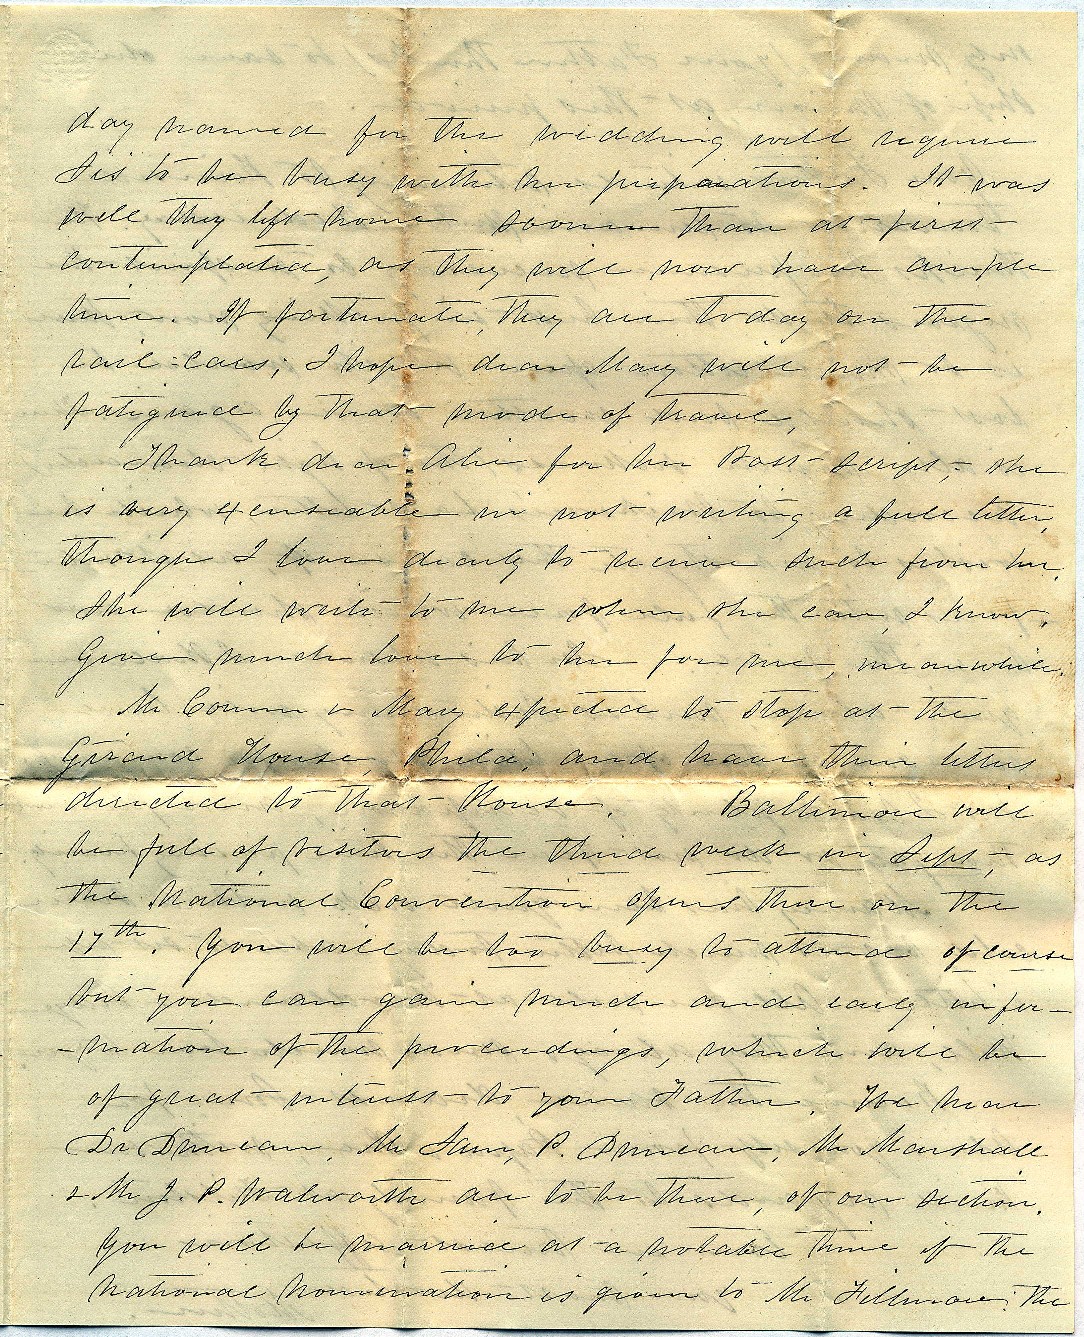 day named for the wedding will require
Sis to be busy with her preparations. It was
well they left home sooner than at first
contemplated, as they will now have ample
time. If fortunate, they are today on the
rail-cars; I hope dear Mary will not be
fatigued by that mode of travel,
Thank dear Alie for her Post-script, she
is very excuseable in not writing a full letter,
though I love dearly to receive such from her.
She will write to me when she can, I know.
Give much love to her for me, meanwhile.
Mr Conner & Mary expected to stop at the
Girard House, Phila, and have their letters
directed to that House. Baltimore will
be full of visitors the third week in Sept, as
the National Convention opens there on the
17th. You will be too busy to attend of course
but you can gain much and early infor-
-mation of the proceedings, which will be
of great interest to your Father. We hear
Dr Duncan, Mr Sam, P. Duncan, Mr Marshall
& Mr J. P. Walworth are to be there, of our section.
You will be married at a notable time if the
National nomination is given to Mr Fillmore; the